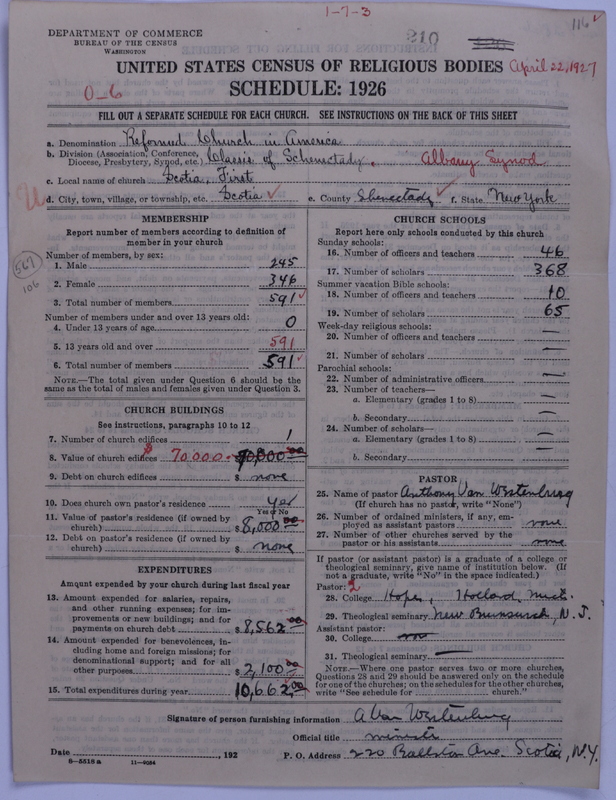 1-7-3
116
DEPARTMENT OF COMMERCE
BUREAU OF THE CENSUS
WASHINGTON
210
UNITED STATES CENSUS OF RELIGIOUS BODIES
April 22, 1927
SCHEDULE: 1926
0-6
FILL OUT A SEPARATE SCHEDULE FOR EACH CHURCH. SEE INSTRUCTIONS ON THE BACK OF THIS SHEET
a. Denomination Reformed Church in America
b. Division (Association, Conference, Diocese, Presbytery, Synod, etc.) Classis of Schenectady. Albany Synod
c. Local name of church Scotia, First
d. City, town, village, or township, etc. Scotia e. County Shenectady f. State New York
MEMBERSHIP
Report number of members according to definition of
member in your church
Number of members, by sex:
1. Male 245
2. Female 346
3. Total number of members 591
Number of members under and over 13 years old:
4. Under 13 years of age 0
5. 13 years old and over 591
6. Total number of members 591
NOTE.—The total given under Question 6 should be the
same as the total of males and females given under Question 3.
567
106
CHURCH BUILDINGS
See instructions, paragraphs 10 to 12
7. Number of church edifices 1
8. Value of church edifices $ 70000
9. Debt on church edifices $ none
10. Does church own pastor's residence yes
Yes or No
11. Value of pastor's residence (if owned by
church) $ 8,000.00
12. Debt on pastor's residence (if owned by
church) $ none
EXPENDITURES
Amount expended by your church during last fiscal year
13. Amount expended for salaries, repairs,
and other running expenses; for im-
provements or new buildings; and for
payments on church debt $ 8,562.00
14. Amount expended for benevolences, in-
cluding home and foreign missions; for
denominational support; and for all
other purposes $ 2,100.00
15. Total expenditures during year 10,662.00
CHURCH SCHOOLS
Report here only schools conducted by this church
Sunday schools:
16. Number of officers and teachers 46
17. Number of scholars 368
Summer vacation Bible schools:
18. Number of officers and teachers 10
19. Number of scholars 65
Week-day religious schools:
20. Number of officers and teachers —
21. Number of scholars —
Parochial schools:
22. Number of administrative officers —
23. Number of teachers—
a. Elementary (grades 1 to 8) —
b. Secondary —
24. Number of scholars—
a. Elementary (grades 1 to 8) —
b. Secondary —
PASTOR
25. Name of pastor Anthony Van Westenburg
(If church has no pastor, write "None")
26. Number of ordained ministers, if any, em-
ployed as assistant pastors none
27. Number of other churches served by the
pastor or his assistants none
If pastor (or assistant pastor) is a graduate of a college or
theological seminary, give name of institution below. (If
not a graduate, write "No" in the space indicated.)
Pastor: 2
28. College Hope, Holland, Mich.
29. Theological seminary New Brunswick, N. J.
Assistant pastor:
30. College
31. Theological seminary —
NOTE.—Where one pastor serves two or more churches,
Questions 28 and 29 should be answered only on the schedule
for one of the churches; on the schedules for the other churches,
write "See schedule for church."
Signature of person furnishing information A Van Westenburg
Official title minister
Date , 192 P. O. Address 220 Ballston Ave. Scotia, N.Y.
8-5518a 11-9084